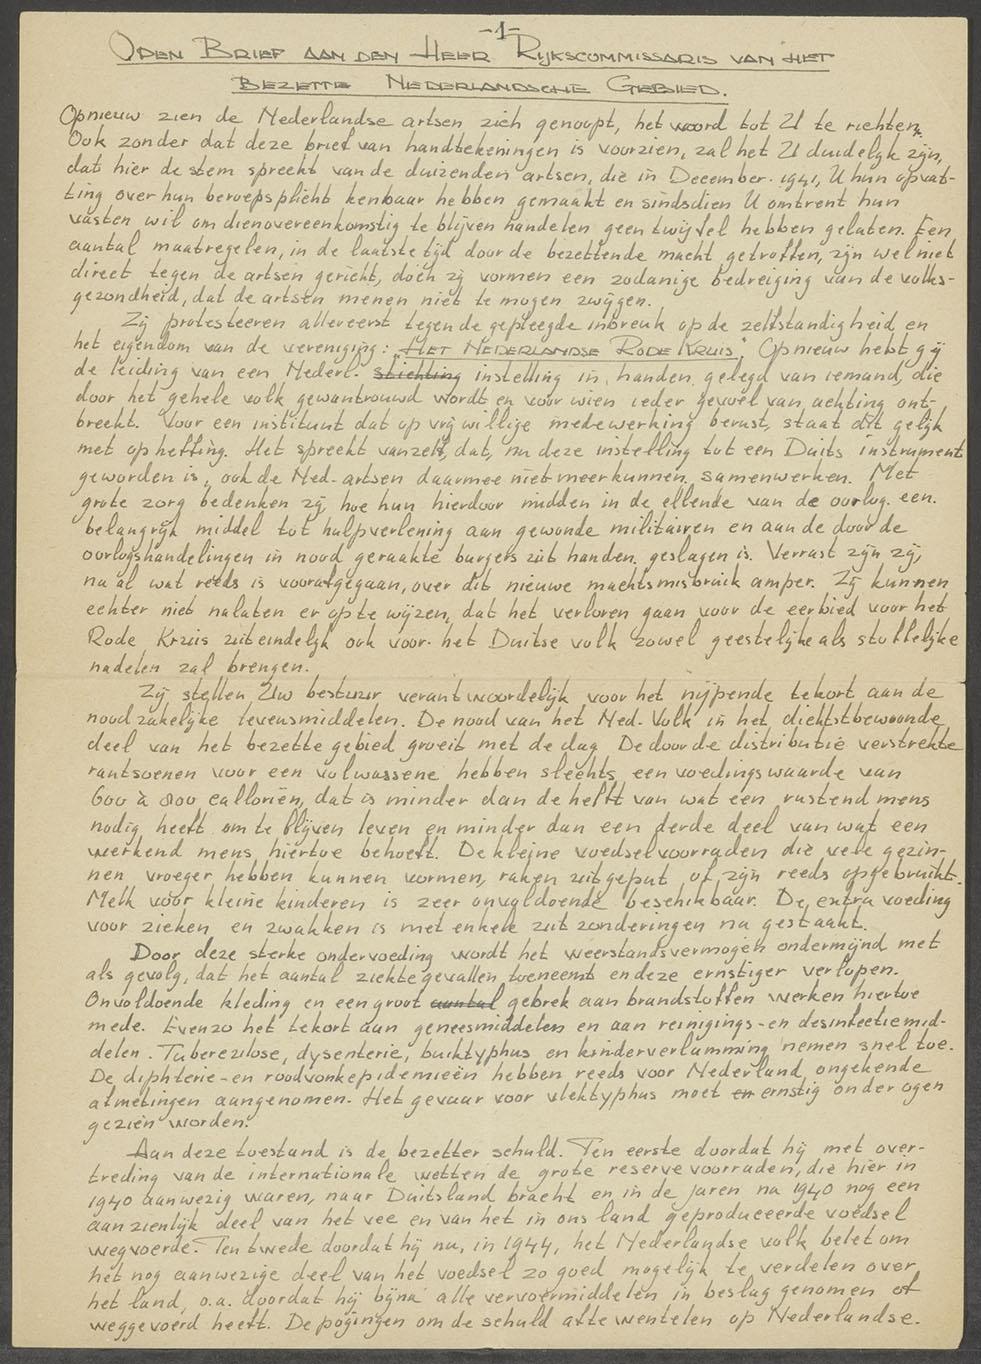 -1-
Open Brief aan den Heer Rijkscommissaris van het
Bezette Nederlandsche Gebied.
Opnieuw zien de Nederlandse artsen zich genoopt, het woord tot U te richten.
Ook zonder dat deze brief van handtekeningen is voorzien, zal het U duidelijk zijn,
dat hier de stem spreekt van de duizenden artsen, die in December 1941, U hun opvat-
ting over hun beroepsplicht kenbaar hebben gemaakt en sindsdien U omtrent hun
vasten wil om dienovereenkomstig te blijven handelen geen twijfel hebben gelaten. Een
aantal maatregelen, in de laatste tijd door de bezettende macht getroffen, zijn wel niet
direct tegen de artsen gericht, doch zij vormen een zodanige bedreiging van de volks-
gezondheid, dat de artsen menen niet te mogen zwijgen.
Zij protesteeren allereerst tegen de gepleegde inbreuk op de zelfstandigheid en
het eigendom van de vereniging: "Het Nederlandse Rode Kruis". Opnieuw hebt gij
de leiding van een Nederl. stichting instelling in handen gelegd van iemand, die
door het gehele volk gewantrouwd wordt en voor wien ieder gevoel van achting ont-
breekt. Voor een instituut dat op vrijwillige medewerking berust, staat dit gelijk
met opheffing. Het spreekt vanzelf, dat, nu deze instelling tot een Duits instrument
geworden is, ook de Ned. artsen daarmee niet meer kunnen samenwerken. Met
grote zorg bedenken zij, hoe hun hierdoor midden in de ellende van de oorlog een
belangrijk middel tot hulpverlening aan gewonde militairen en aan de door de
oorlogshandelingen in nood geraakte burgers uit handen geslagen is. Verrast zijn zij,
na al wat reeds is voorafgegaan, over dit nieuwe machtsmisbruik amper. Zij kunnen
echter niet nalaten er op te wijzen, dat het verloren gaan voor de eerbied voor het
Rode Kruis uiteindelijk ook voor het Duitse volk zowel geestelijke als stoffelijke
nadelen zal brengen.
Zij stellen Uw bestuur verantwoordelijk voor het nijpende tekort aan de
noodzakelijke levensmiddelen. De nood van het Ned. Volk in het dichtstbewoonde
deel van het bezette gebied groeit met de dag. De door de distributie verstrekte
rantsoenen voor een volwassene hebben slechts een voedingswaarde van
600 à 800 calloriën, dat is minder dan de helft van wat een rustend mens
nodig heeft om te blijven leven en minder dan een derde deel van wat een
werkend mens hiertoe behoeft. De kleine voedselvoorraden die vele gezin-
nen vroeger hebben kunnen vormen, raken uitgeput of zijn reeds opgebruikt.
Melk voor kleine kinderen is zeer onvoldoende beschikbaar. De extra voeding
voor zieken en zwakken is met enkele uitzonderingen na gestaakt.
Door deze sterke ondervoeding wordt het weerstandsvermogen ondermijnd met
als gevolg, dat het aantal ziektegevallen toeneemt en deze ernstiger verlopen.
Onvoldoende kleding en een groot aantal gebrek aan brandstoffen werken hiertoe
mede. Evenzo het tekort aan geneesmiddelen en aan reinigings- en desinfectiemid-
delen. Tuberculose, dysenterie, buiktyphus en kinderverlamming nemen snel toe.
De diphterie- en roodvonkepidemieën hebben reeds voor Nederland ongekende
afmetingen aangenomen. Het gevaar voor vlektyphus moet en ernstig onder ogen
gezien worden.
Aan deze toestand is de bezetter schuld. Ten eerste doordat hij met over-
treding van de internationale wetten de grote reservevoorraden, die hier in
1940 aanwezig waren, naar Duitsland bracht en in de jaren na 1940 nog een
aanzienlijk deel van het vee en van het in ons land geproduceerde voedsel
wegvoerde. Ten twede doordat hij nu, in 1944, het Nederlandse volk belet om
het nog aanwezige deel van het voedsel zo goed mogelijk te verdelen over
het land, o.a. doordat hij bijna alle vervoermiddelen in beslag genomen of
weggevoerd heeft. De pogingen om de schuld af te wentelen op Nederlandse.